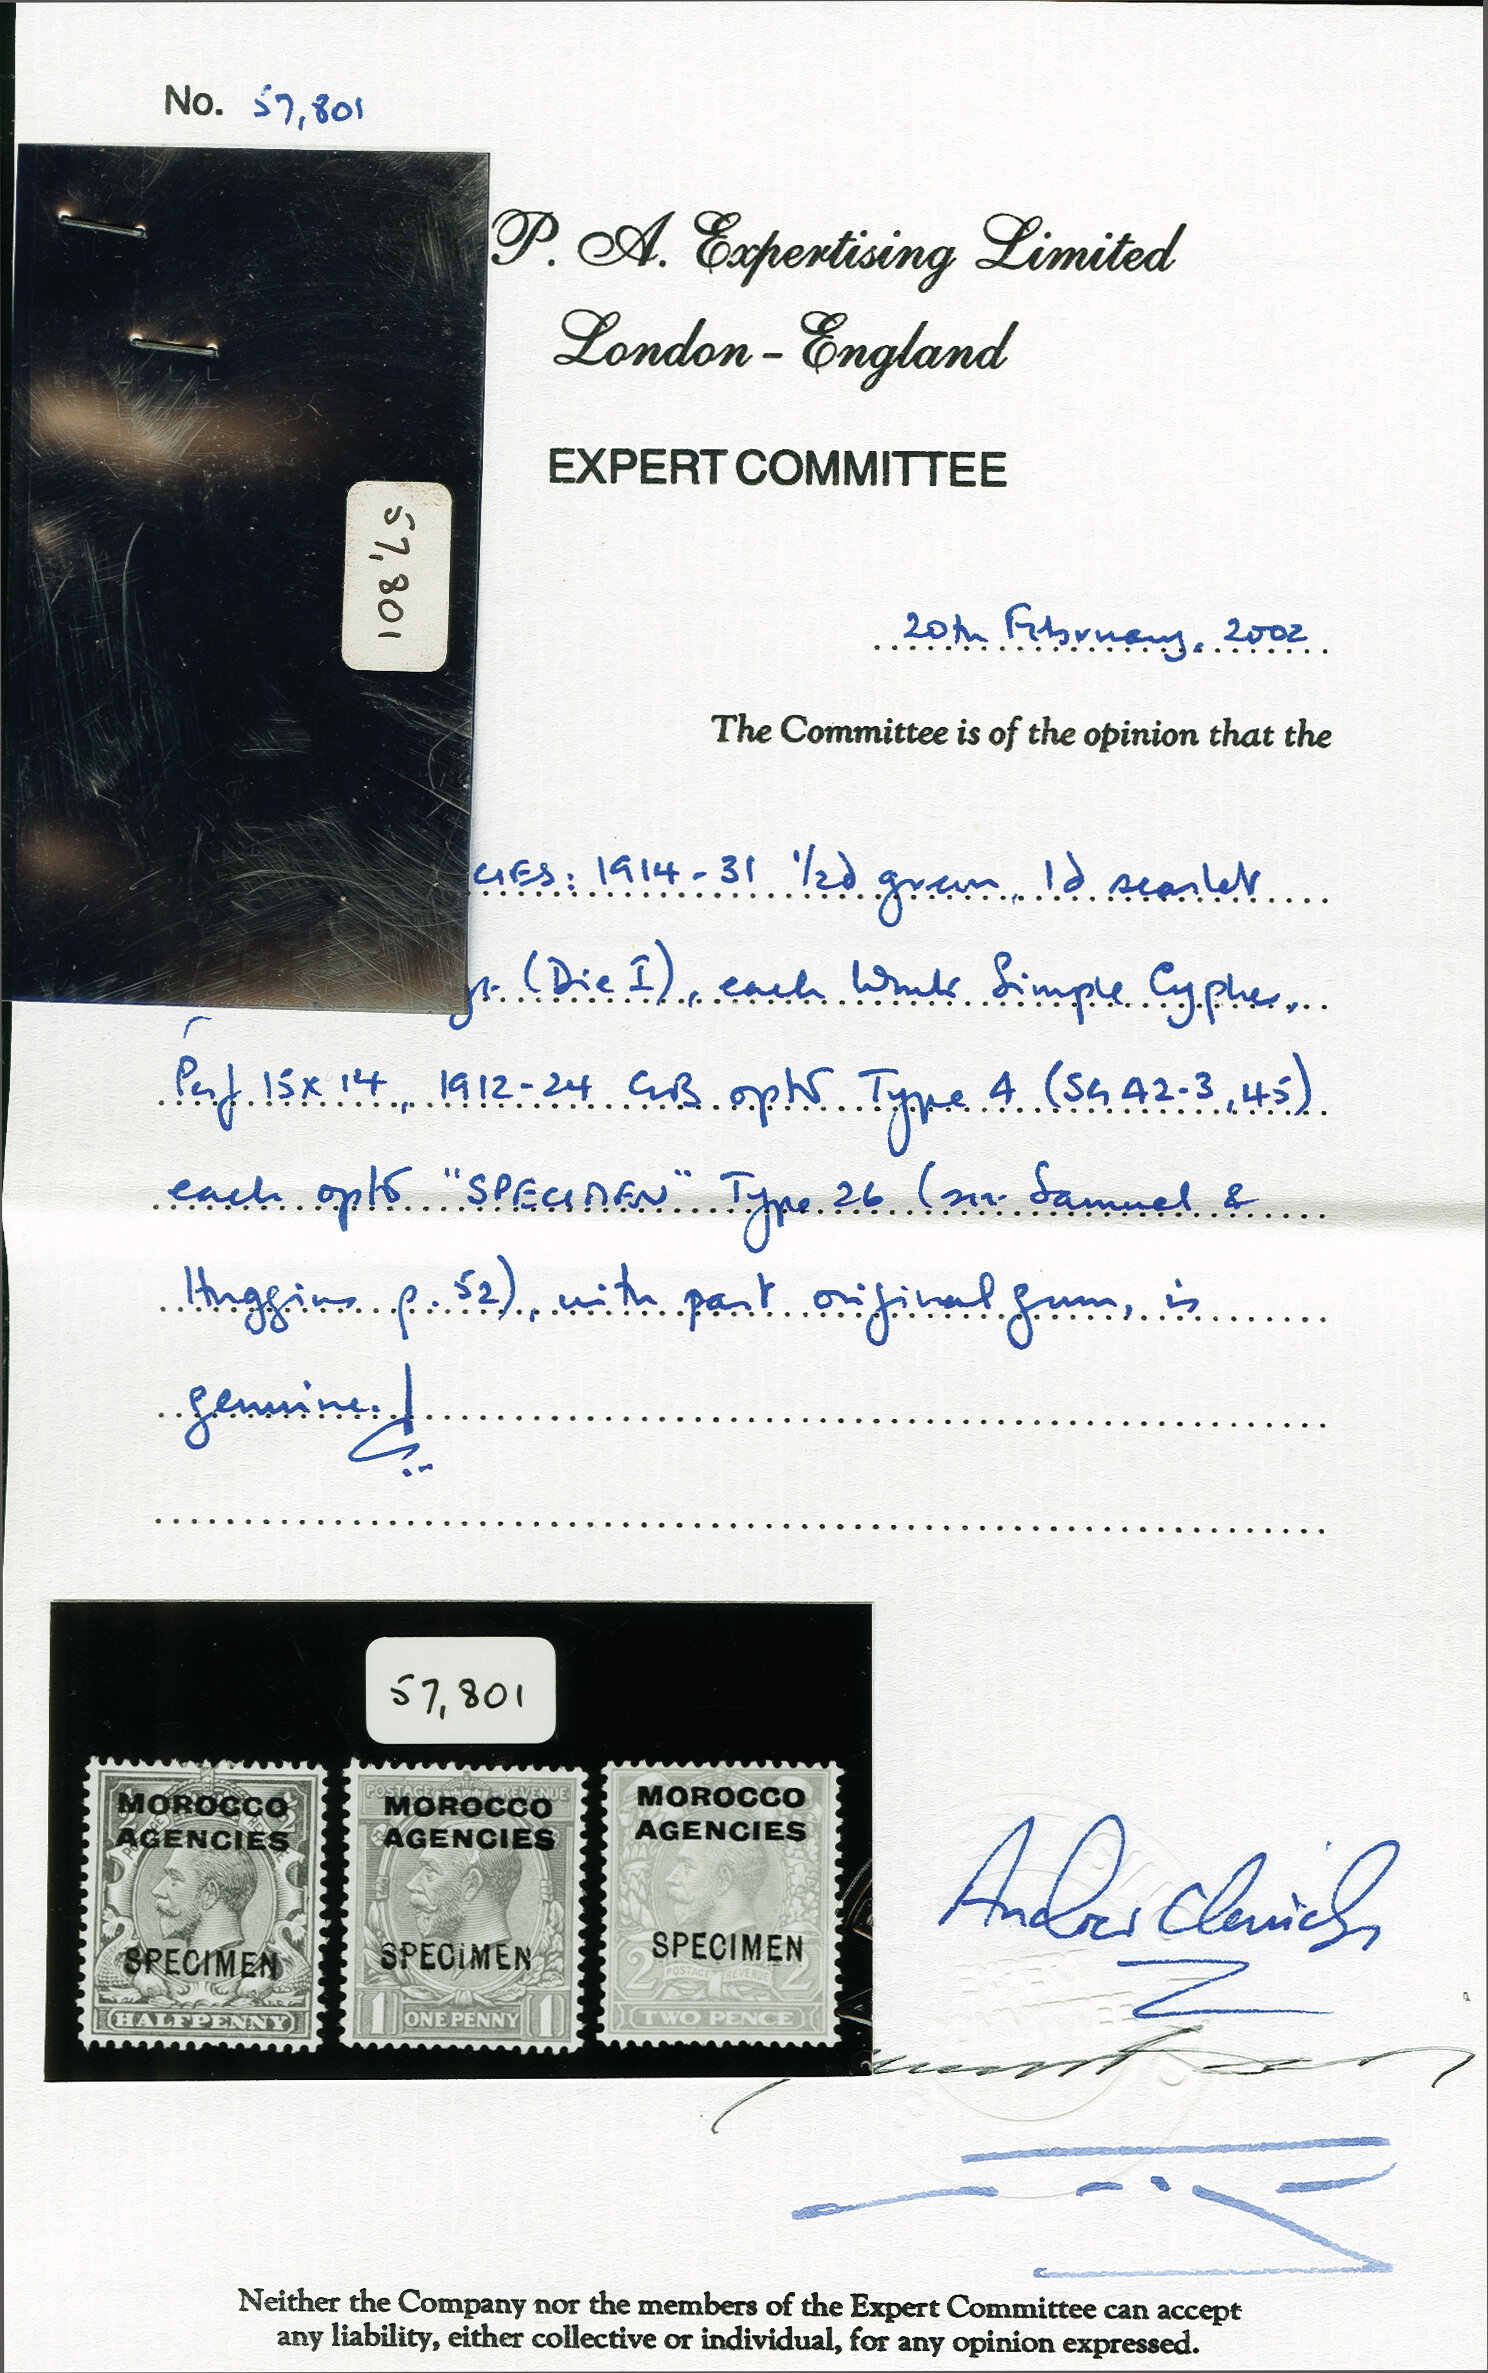 No. 57,801
P. A. Expertising Limited
London - England
EXPERT COMMITTEE
57,801
20th February, 2002
The Committee is of the opinion that the
CIES: 1914-31 1/2d green, 1d scarlet
(Die I), each Wmk Simple Cypher,
Perf 15x14, 1912-24 GB optd Type A (SG 42-3, 45)
each optd "SPECIMEN" Type 26 (see Samuel &
Huggins p. 52), with part original gum, is
genuine.
57,801
MOROCCO AGENCIES SPECIMEN HALFPENNY
POSTAGE REVENUE MOROCCO AGENCIES SPECIMEN 1 ONE PENNY 1
MOROCCO AGENCIES SPECIMEN 2 POSTAGE REVENUE 2 TWO PENCE
Neither the Company nor the members of the Expert Committee can accept
any liability, either collective or individual, for any opinion expressed.